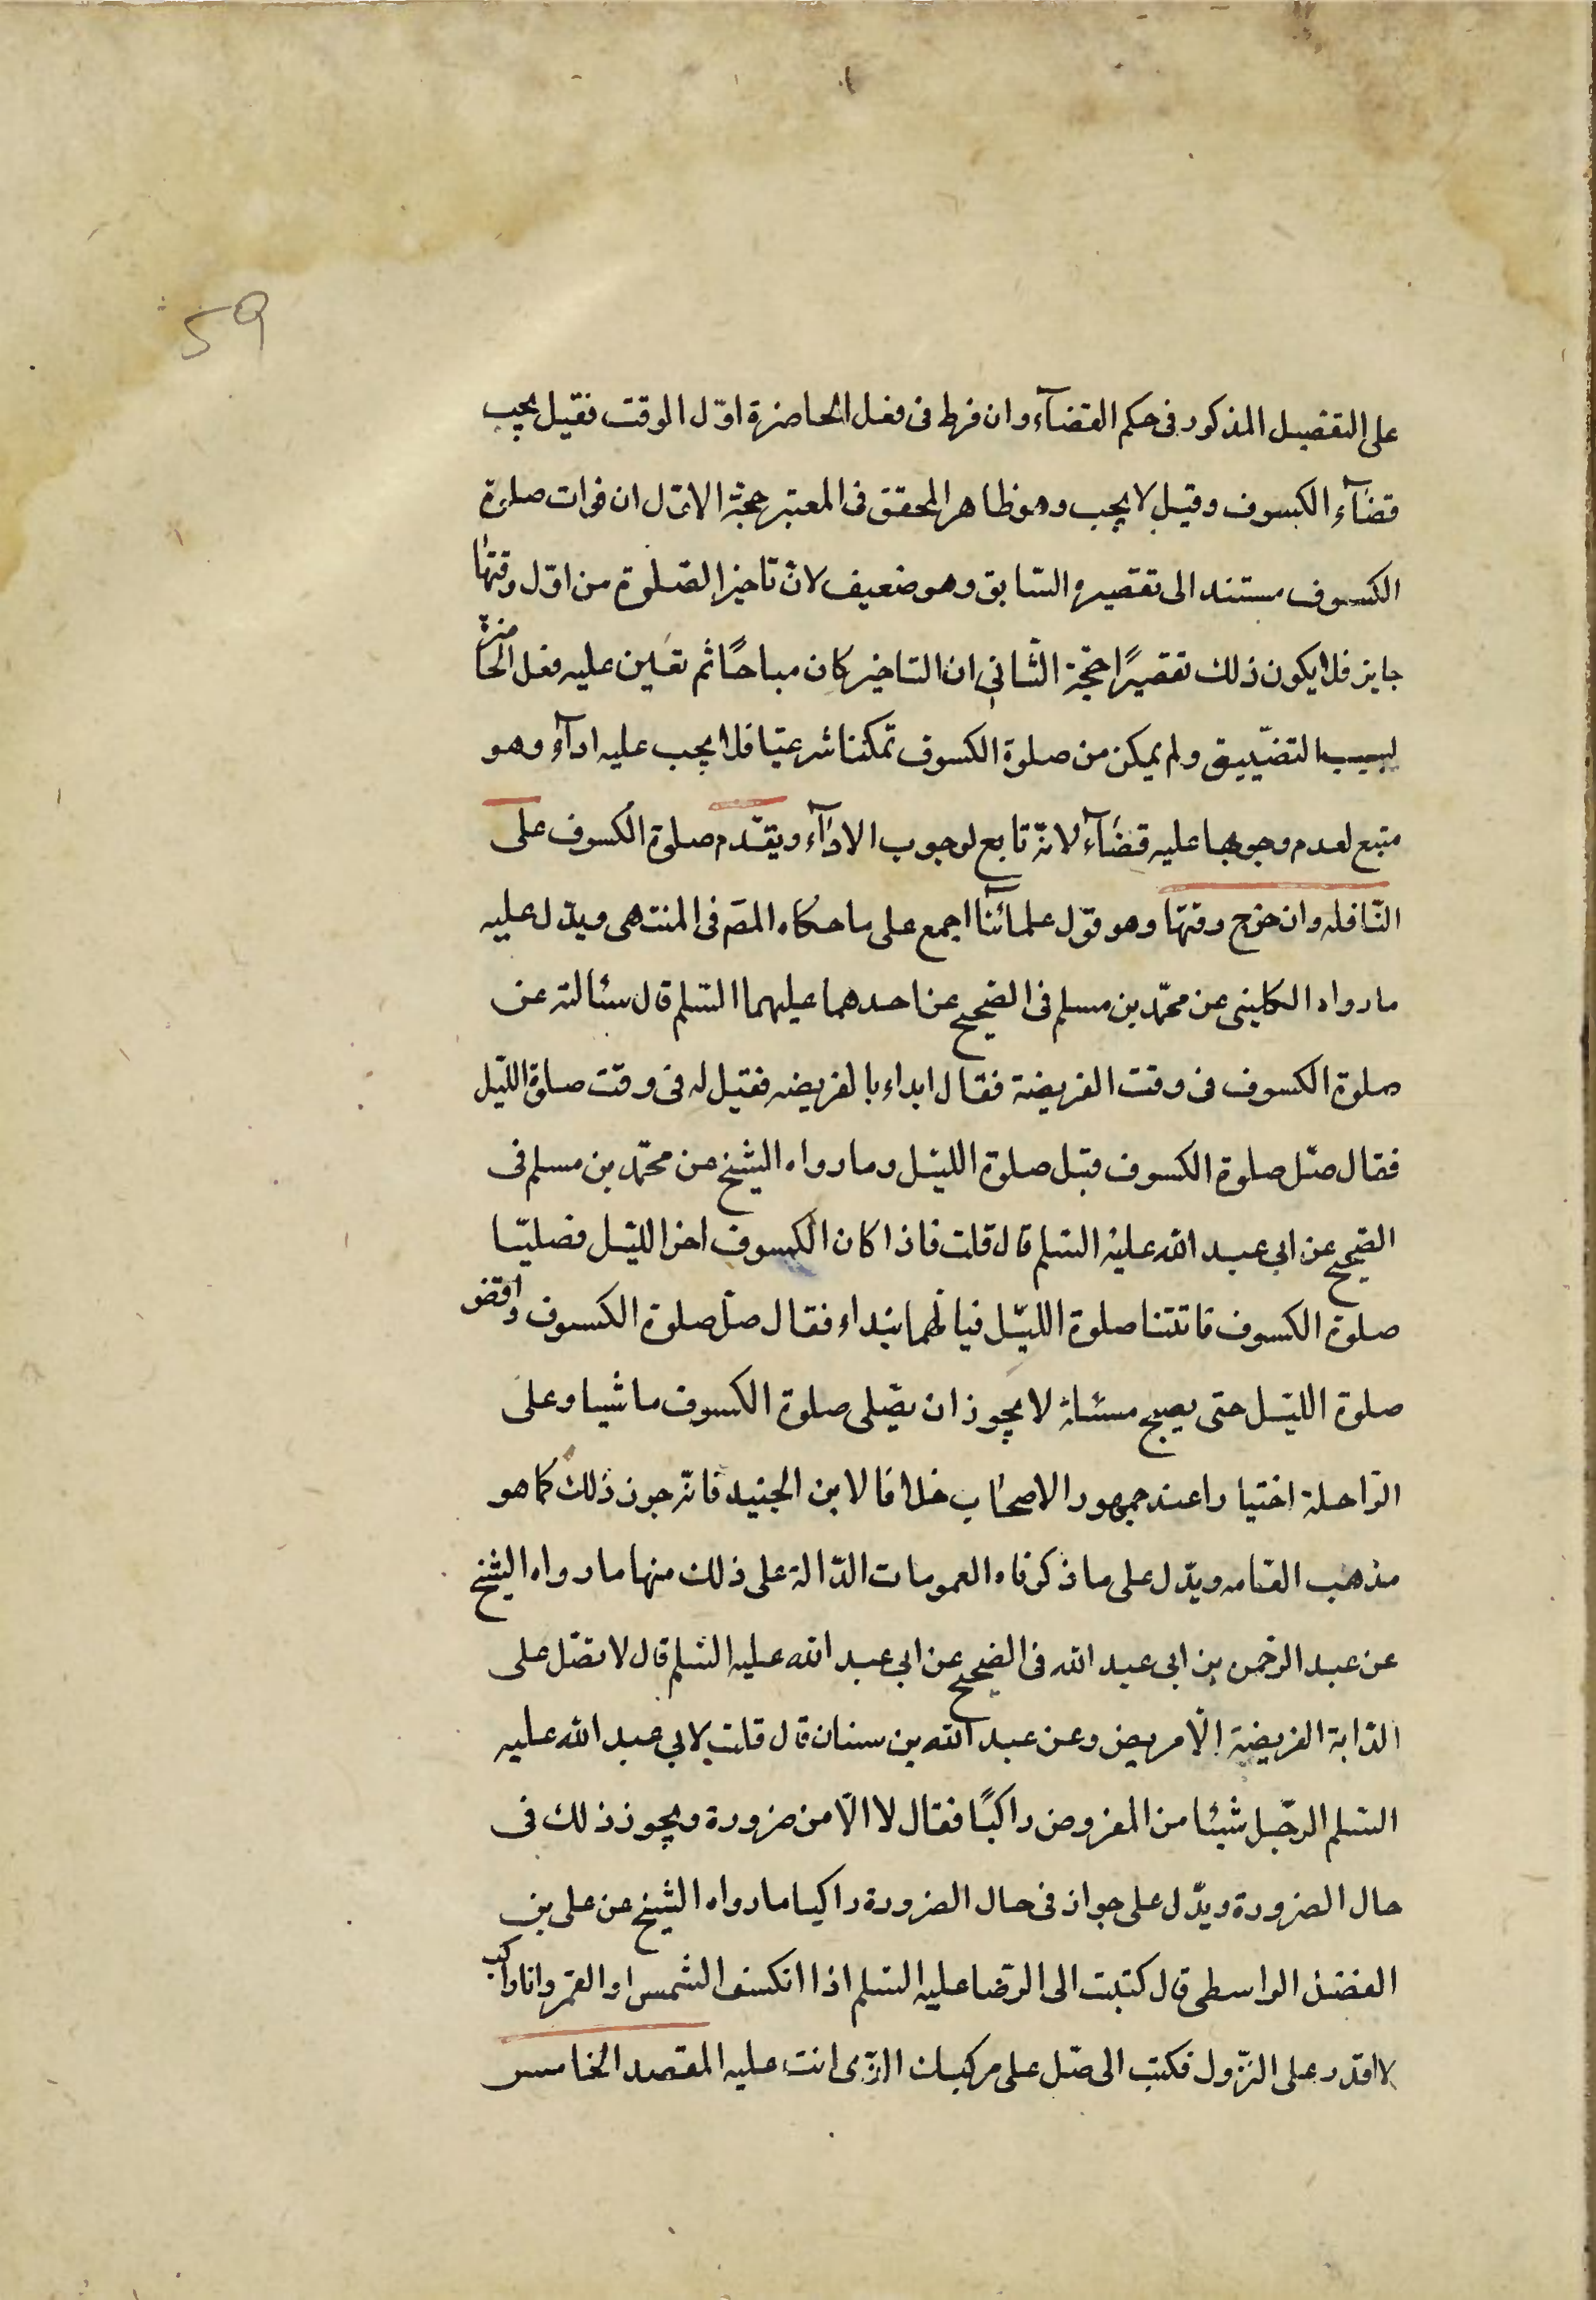 59
على التفصيل المذكور فى حكم القضآء وان فرط فى فعل الحاضرة اوّل الوقت فقيل يجب
قضآء الكسوف وقيل لا يجب وهو ظاهر المحقق فى المعتبر حجّة الاوّل ان فوات صلوة
الكسوف مستند الى تقصيره السّابق وهو ضعيف لانّ تاخير الصّلوة من اوّل وقتها
جايز فلا يكون ذلك تقصيرًا حجّة الثّانى ان التاخير كان مباحًا ثم تعيّن عليه فعل الحاضرة
لسبب التضّييق ولم يمكن من صلوة الكسوف تمكّنا شرعيّا فلا يجب عليه ادآؤ وهو
متبع لعدم وجوبها عليه قضآء لانّه تابع لوجوب الادآء ويقدّم صلوة الكسوف على
النّافله وان خرج وقتها وهو قوّل علمائنا اجمع على ما حكاه المصّ فى المنتهى ويدّل عليه
ما رواه الكلينى عن محمّد بن مسلم فى الصّحيح عن احدهما عليهما السّلم قال سئالته عن
صلوة الكسوف فى وقت الفريضة فقال ابداء بالفريضه فقيل له فى وقت صلوة اللّيل
فقال صّل صلوة الكسوف قبل صلوة الليّل وما رواه الشيخ عن محمّد بن مسلم فى
الصّحيح عن ابى عبد الله عليه السّلم قال قلت فاذا كان الكسوف اخر الليّل فصليّنا
صلوة الكسوف فاتتنا صلوة الليّل فبايّهما نبداء فقال صلّ صلوة الكسوف واقض
صلوة الليّل حتى يصبح مسئلة لا يجوز ان يصّلى صلوة الكسوف ماشيا وعلى
الرّاحلة اختيارا عند جمهور الاصحاب خلافا لابن الجنيد فانّه جوز ذلك كما هو
مذهب العّامه ويدّل على ما ذكرناه العمومات الدّالة على ذلك منها ما رواه الشيخ
عن عبد الرحّمن بن ابى عبد الله فى الصّحيح عن ابى عبد الله عليه السّلم قال لا تصّل على
الدّابة الفريضة الّا مريض وعن عبد الله بن سنان قال قلت لابى عبد الله عليه
السّلم الرجّل شيئا من المفروض راكبًا فقال لا الّا من ضرورة ويجوز ذلك فى
حال الضرورة ويدّل على جواز فى حال الضرورة راكبا ما رواه الشيخ عن على بن
الفضّل الواسطى قال كتبت الى الرّضا عليه السّلم اذا انكسف الشمس او القمر وانا راكب
لا اقدر على النزّول فكتب الى صّل على مركبك الذّى انت عليه المقصد الخامس